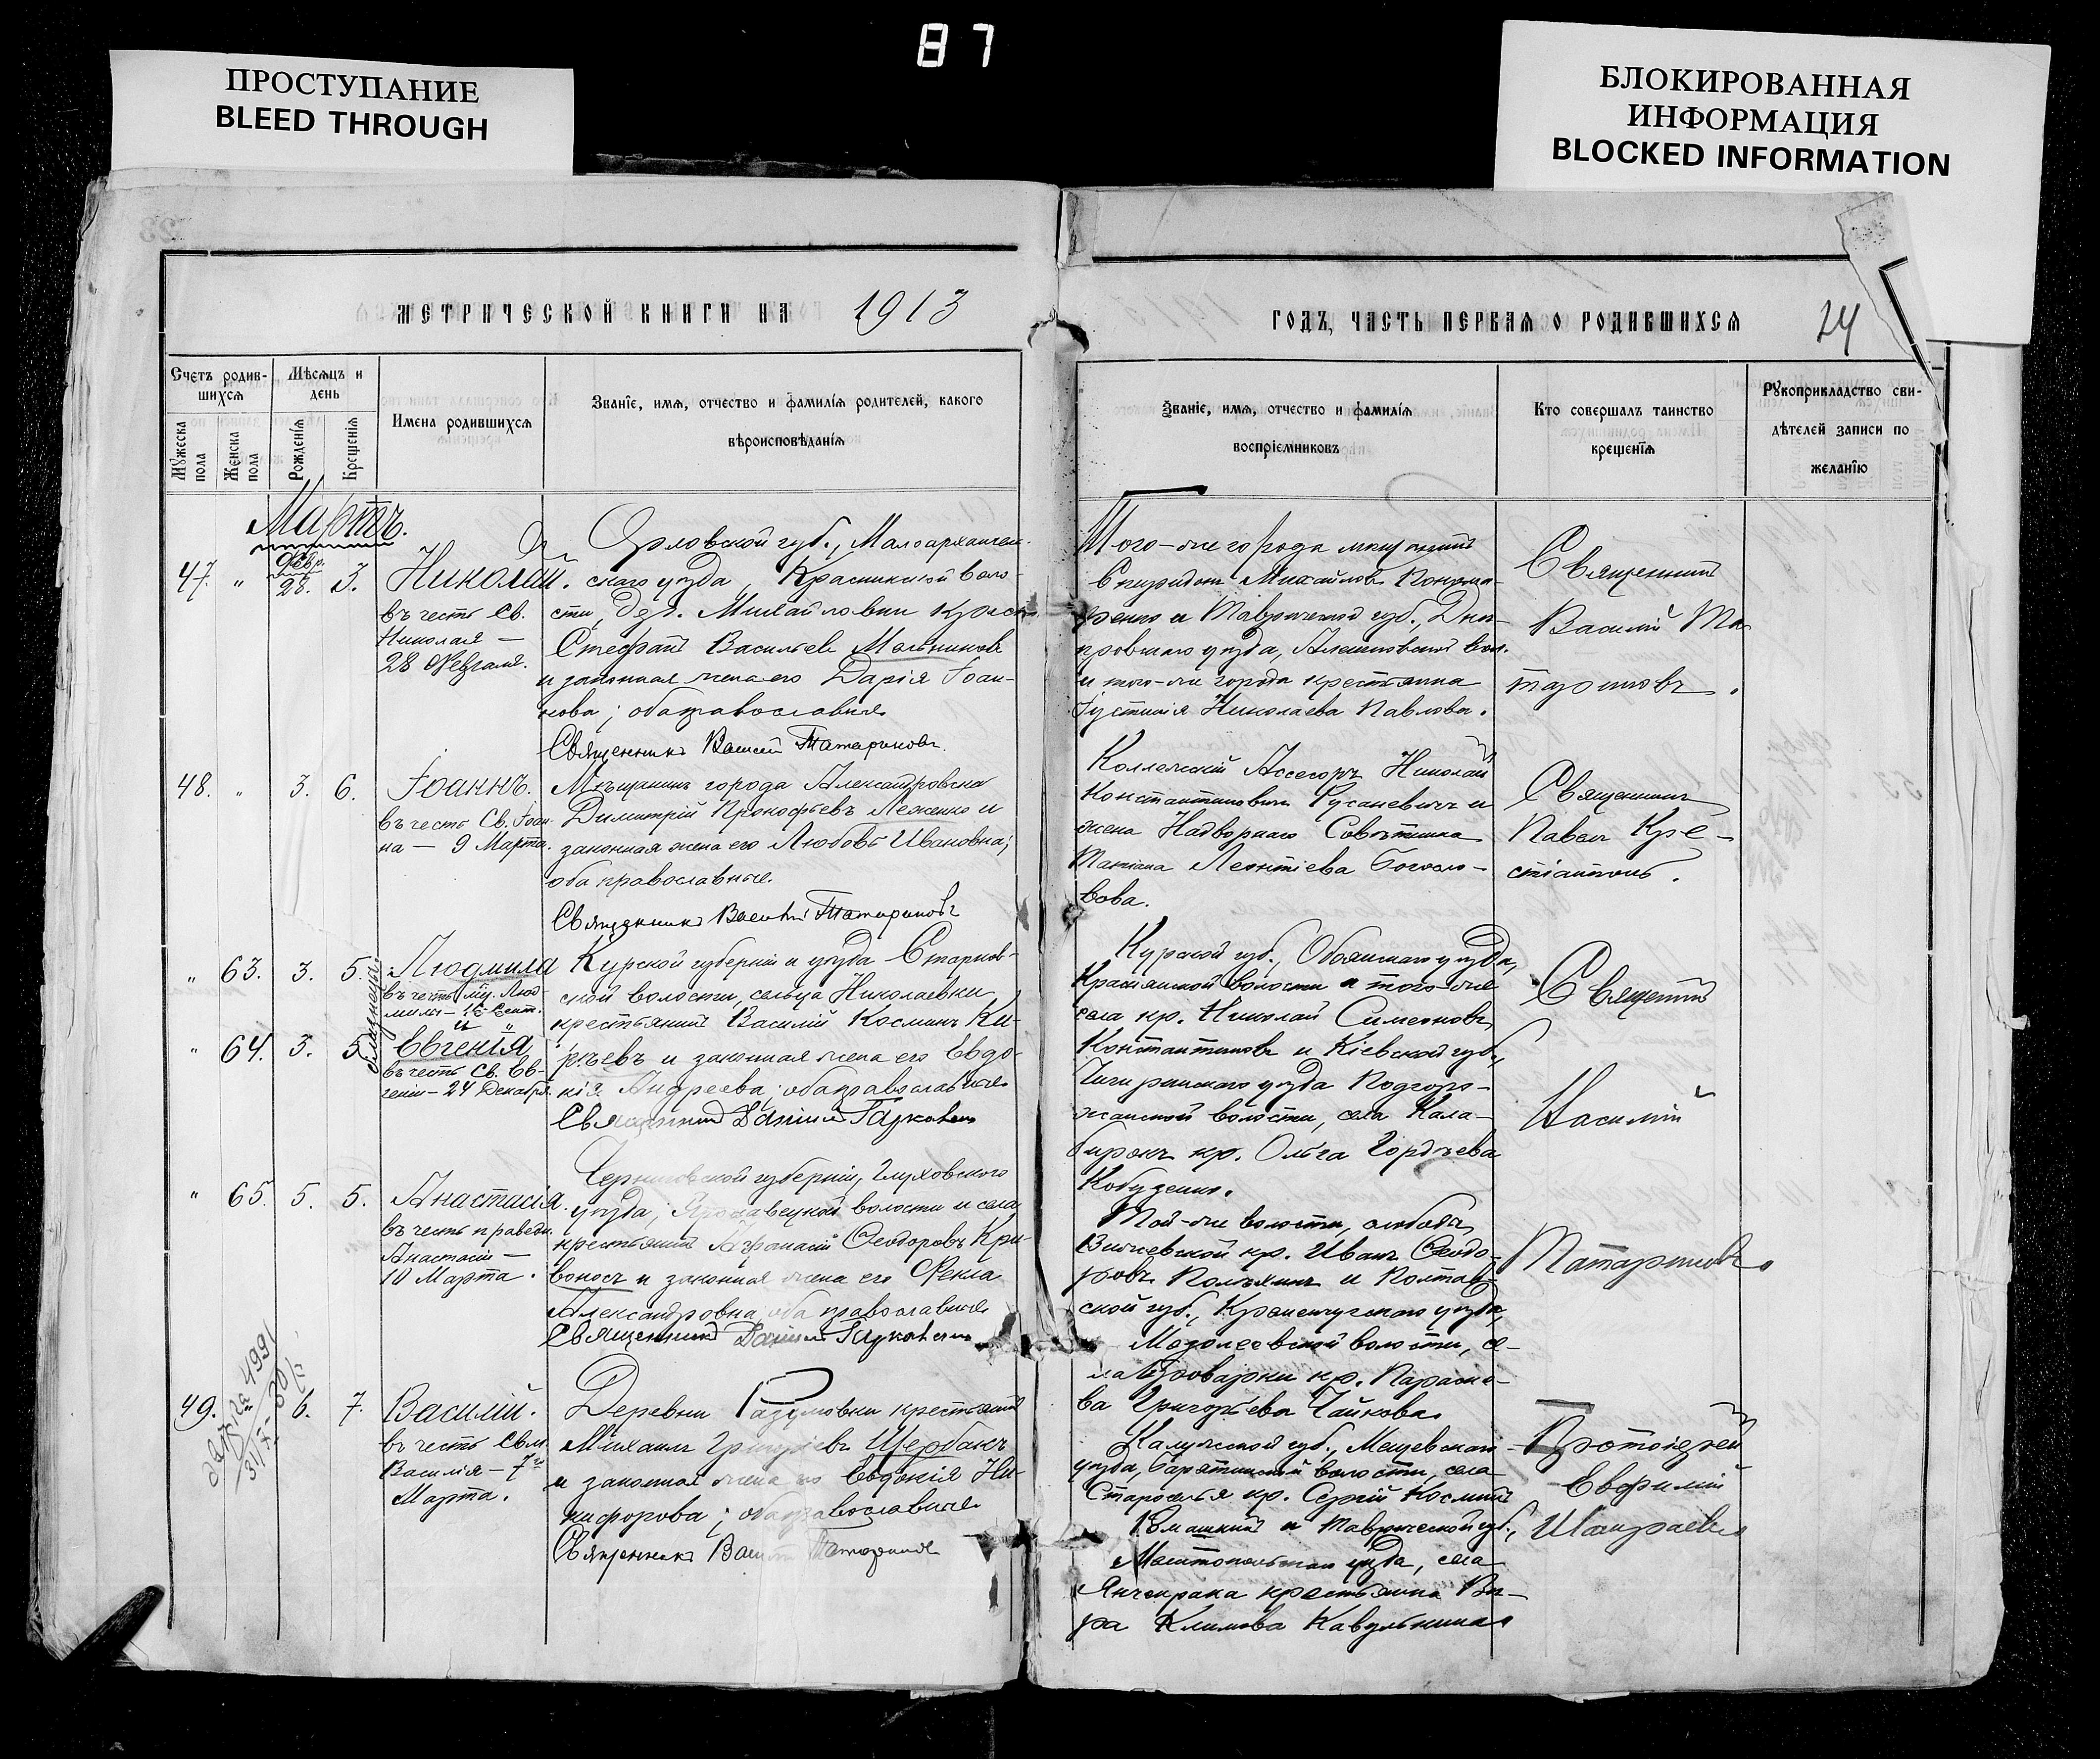 87
ПРОСТУПАНИЕ
BLEED THROUGH
БЛОКИРОВАННАЯ
ИНФОРМАЦИЯ
BLOCKED INFORMATION
МЕТРИЧЕСКОЙ КНИГИ НА 1913
Счетъ родив-
шихся
Мѣсяцъ и
день
Мужеска
пола
Женска
пола
Рожденія
Крещенія
Имена родившихся
Званіе, имя, отчество и фамилія родителей, какого
вѣроисповѣданія
Мартъ.
47. „ Февр. 28. 3.
Николай.
въ честь Св.
Николая —
28 Февраля.
Орловской губ., Малоархангель-
скаго уѣзда, волο-
сти, дер. Михайловки крест.
Стефанъ Васильевъ Мельниковъ
и законная жена его Дарія Іоан-
нова; оба православные
Священникъ Василій Татариновъ.
48. „ 3. 6.
Іоаннъ.
въ честь Св. Іоан-
на — 9 Марта.
Мѣщанинъ города Александровска
Димитрій Прокофьевъ Леженко и
законная жена его Любовь Ивановна;
оба православные.
Священникъ Василій Татариновъ
„ 63. 3. 5.
Людмила
въ честь мц. Люд-
милы — 16 Сент.
и
„ 64. 3. 5
близнецы
Евгенія
въ честь Св. Ев-
геніи — 24 Декабря.
Курской губерніи и уѣзда
ской волости, сельца Николаевки
крестьянинъ Василій Косминъ Ки-
рѣевъ и законная жена его Евдо-
кія Андреева; оба православные
Священникъ Даніилъ
„ 65. 5. 5.
Анастасія.
въ честь праведн.
Анастасіи —
10 Марта.
Черниговской губерніи, Глуховскаго
уѣзда, волости и села
крестьянинъ Афанасій Феодоровъ Кри-
воносъ и законная жена его Фекла
Александровна оба православные
Священникъ Даніилъ
49. „ 6. 7.
Василій.
въ честь Свм.
Василія — 7го
Марта.
Деревни Разумовки крестьянинъ
Михаилъ Григорьевъ Щербакъ
и законная жена его Евдокія Ни-
кифорова; оба православные
Священникъ Василій Татариновъ
ГОДЪ, ЧАСТЬ ПЕРВАЯ О РОДИВШИХСЯ
24
Званіе, имя, отчество и фамилія
воспріемниковъ
Кто совершалъ таинство
крещенія
Рукоприкладство сви-
дѣтелей записи по
желанію
Того-же города мѣщанинъ
Спиридонъ Михайловъ Понома-
ренко и Таврической губ., Днѣ-
провскаго уѣзда, Алешковской вол.
и того-же города крестьянка
Іустинія Николаева Павлова.
Священникъ
Василій Та-
тариновъ.
Коллежскій Ассесоръ Николай
Константиновичъ и
жена Надворнаго Совѣтника
Татіана Леонтіева Боголю-
бова.
Священникъ
Павелъ
Курской губ., Обоянскаго уѣзда,
волости и того-же
села кр. Николай Симеоновъ
Константиновъ и Кіевской губ.,
Чигиринскаго уѣзда Подоро-
жанской волости, села Кала-
кр. Ольга Гордѣева
Священникъ
Василій
Татариновъ.
Той-же волости, слободы
кр. Иванъ Феодо-
ровъ и Полтав-
ской губ., Кременчугскаго уѣзда,
волости, се-
ла кр. Параске-
ва Григорьева Чайкова.
Калужской губ., Мещовскаго
уѣзда, волости, села
Староселья кр. Сергій Косминъ
и Таврической губ.,
Мелитопольскаго уѣзда, села
Янчекрака крестьянка Вѣ-
ра Климова
Протоіерей
Евфимій